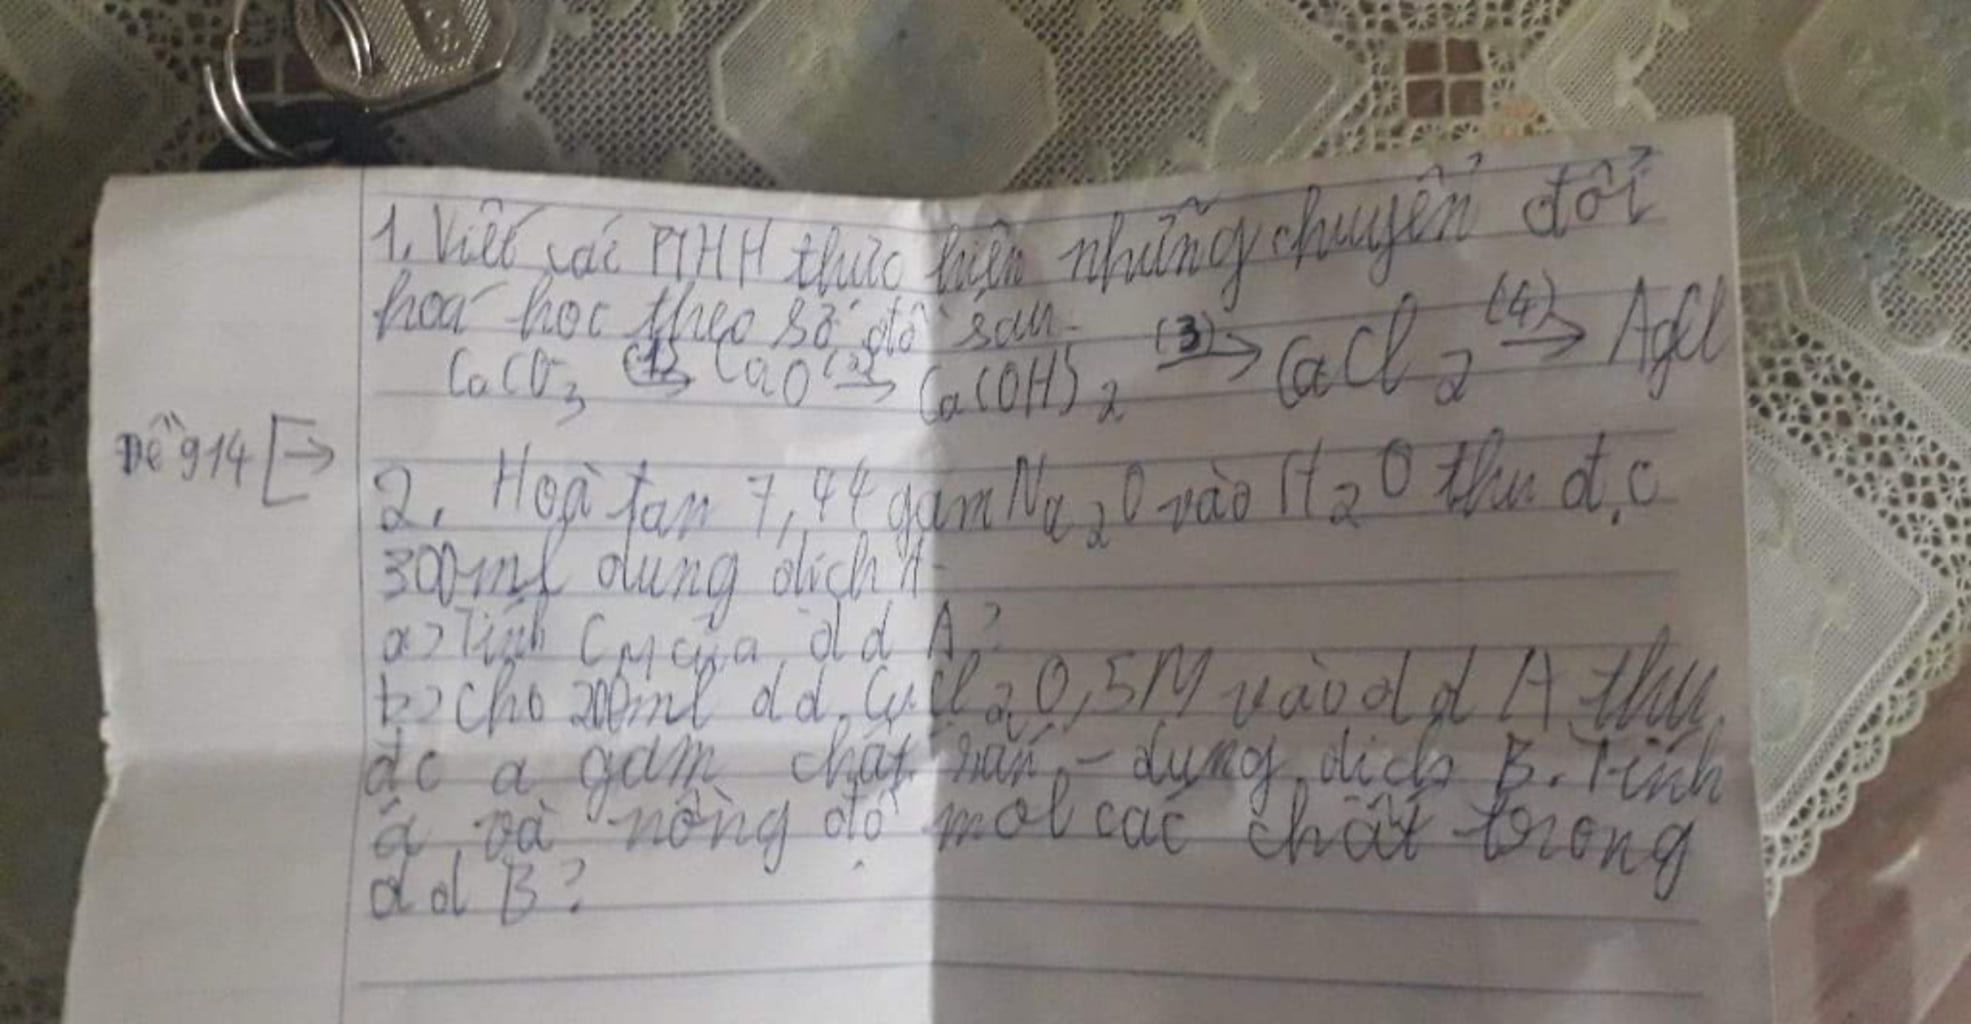 1. Viết các PTHH thực hiện những chuyển đổi
hoá học theo sơ đồ sau.
CaCO3 (1)→ CaO (2)→ Ca(OH)2 (3)→ CaCl2 (4)→ AgCl
Đề 914 [→
2. Hoà tan 7,44 gam Na2O vào H2O thu đ,c
300ml dung dịch A.
a> Tính CM của dd A?
b> cho 200ml dd CuCl2 0,5M vào dd A thu
đc a gam chất rắn - dung dịch B. Tính
a và nồng độ mol các chất trong
dd B?